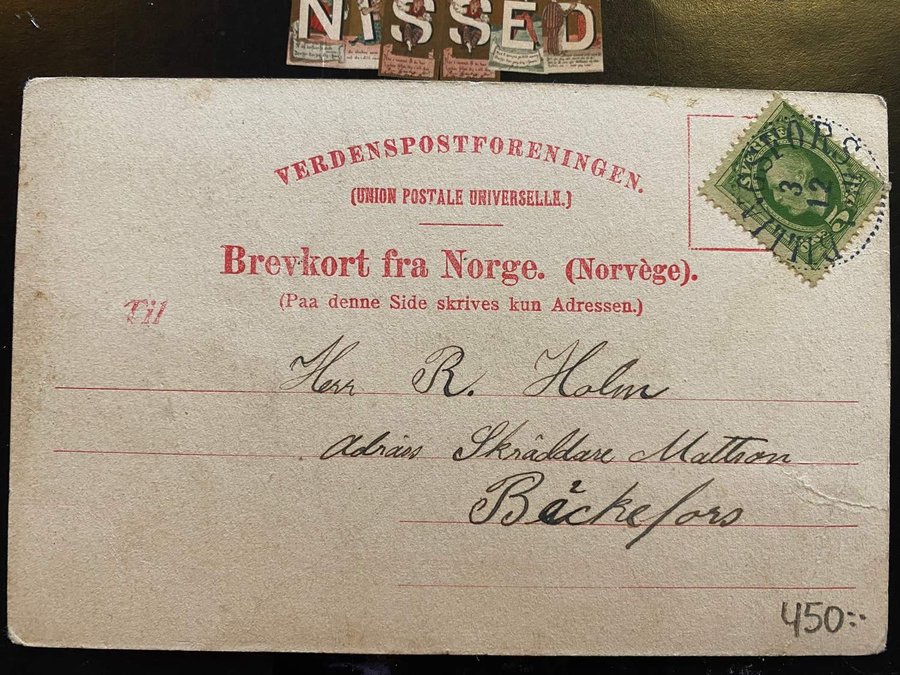 NISSED
VERDENSPOSTFORENINGEN.
(UNION POSTALE UNIVERSELLE.)
Brevkort fra Norge. (Norvège).
(Paa denne Side skrives kun Adressen.)
Til
SVERIGE
3
12
Herr R. Holm
Adräss Skräddare Mattson
Bäckefors
450:-